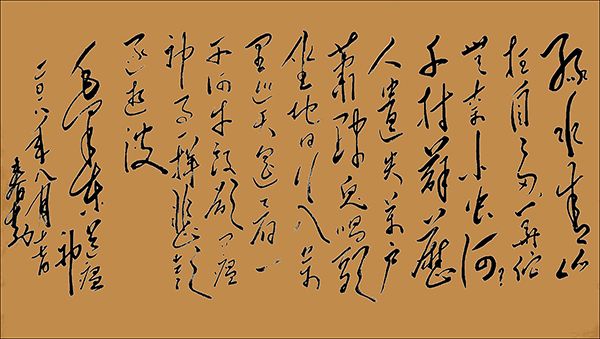 绿水青山
枉自多华佗
無奈小虫何
千村薜
人遺失萬户
萧疏鬼唱歌
坐地日行八萬
里巡天遥看一
千河牛郎欲问瘟
神事一样悲歡
逐逝波
毛泽东诗送瘟神
二〇一八年八月